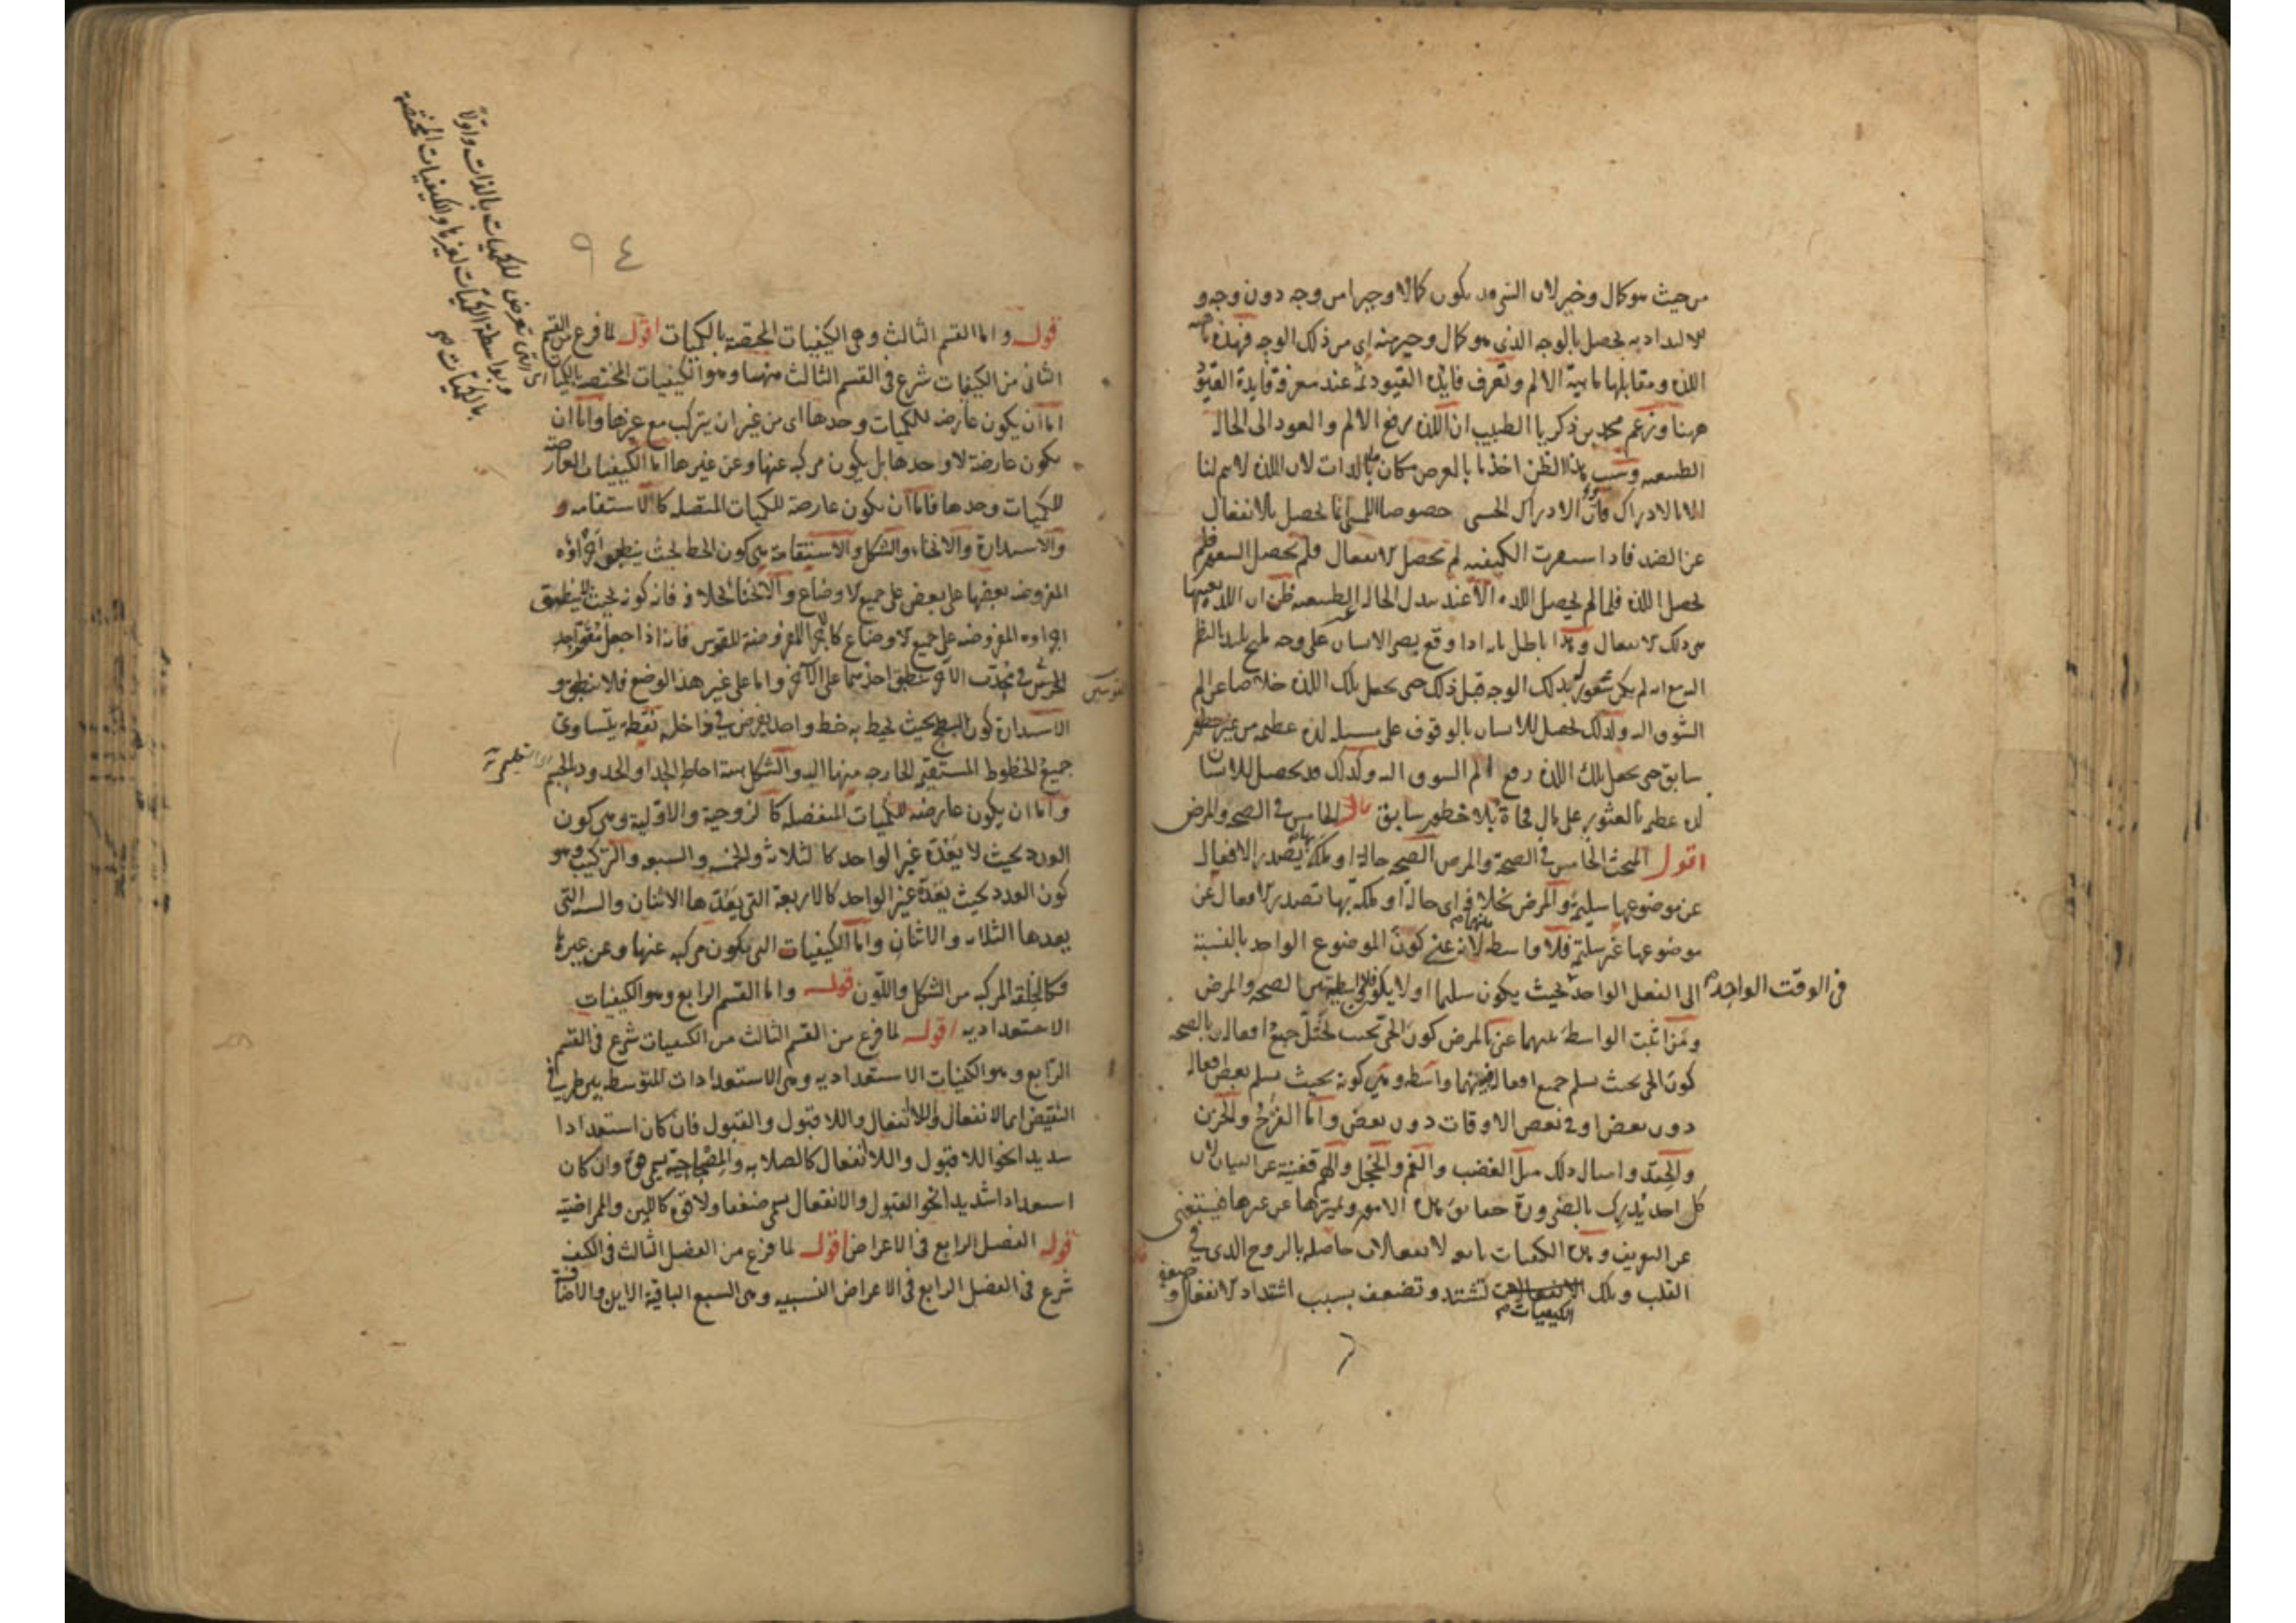 من حيث هو كمال وخير لان الشى قد يكون كمالا وخيرا من وجه دون وجه و
الالتذاذ به يحصل بالوجه الذى هو كمال وخير منه اى من ذلك الوجه فهذه ماهية
اللذة ومقابلها ماهية الالم وتعرف فايدة القيود ثمه عند معرفة فايدة القيود
ههنا وزعم محمد بن زكريا الطبيب ان اللذة رفع الالم والعود الى الحالة
الطبيعية وسبب هذا الظن اخذ ما بالعرض مكان ما بالذات لان اللذة لا يتم لنا
الا بالادراك فان الادراك الحسى خصوصا اللمسى انما يحصل بالانفعال
عن الضد فاذا استقرت الكيفية لم يحصل الانفعال فلم يحصل الشعور فلم
يحصل اللذة فلما لم يحصل اللذة الا عند تبدل الحالة الطبيعية ظن ان اللذة بعينها
هى ذلك الانفعال وهذا باطل بانه اذا وقع بصر الانسان على وجه مليح يلتذ بالنظر
اليه مع انه لم يكن له شعور بذلك الوجه قبل ذلك حتى يجعل تلك اللذة خلاصا عن الم
الشوق اليه ولذلك يحصل للانسان بالوقوف على مسئلة لذة عظيمة من غير خطور
سابق حتى يجعل تلك اللذة رفع الم الشوق اليه وكذلك قد يحصل للانسان
لذة عظيمة بالعثور على مال فجأة بلا خطور سابق قال الخامس فى الصحة والمرض
اقول المبحث الخامس فى الصحة والمرض الصحة حالة او ملكة بها يصدر الافعال
عن موضوعها سليمة والمرض بخلافه اى حالة او ملكة بها تصدر الافعال عن
موضوعها غير سليمة فلا واسطة بينهما لانه عنى كون الموضوع الواحد بالنسبة
الى الفعل الواحد فى الوقت الواحد بحيث يكون سليما او لا يكون فلا واسطة بين الصحة والمرض
ومن اثبت الواسطة بينهما عنى بالمرض كون الحى بحيث يختل جميع افعاله وبالصحة
كون الحى بحيث يسلم جميع افعاله فبينهما واسطة وهى كونه بحيث يسلم بعض افعاله
دون بعض او فى بعض الاوقات دون بعض واما الفرح والحزن
والحقد وامثال ذلك مثل الغضب والغم والخجل والهم فغنية عن البيان لان
كل احد يدرك بالضرورة حقائق هذه الامور وتميزها عن غيرها فيستغنى
عن التعريف وهذه الكيفيات تابعة لانفعالات حاصلة بالروح الذى فى
القلب وتلك الكيفيات تشتد وتضعف بسبب اشتداد الانفعال وضعفه
٩٤
قوله واما القسم الثالث وهى الكيفيات المختصة بالكميات اقول لما فرغ من القسم
الثانى من الكيفيات شرع فى القسم الثالث منها وهو الكيفيات المختصة بالكميات
اى التى تعرض للكميات بالذات واولا
وبواسطة الكميات لغيرها والكيفيات المختصة
بالكميات صح
اما ان يكون عارضة للكميات وحدها اى من غير ان يتركب مع غيرها واما ان
يكون عارضة لا وحدها بل يكون مركبة عنها وعن غيرها اما الكيفيات العارضة
للكميات وحدها فاما ان يكون عارضة للكميات المتصلة كالاستقامة و
والاستدارة والانحناء والشكل والاستقامة هى كون الخط بحيث ينطبق اجزاؤه
المفروضة بعضها على بعض على جميع الاوضاع والانحناء بخلافه فانه كونه بحيث لا ينطبق
اجزاؤه المفروضة على جميع الاوضاع كالاجزاء المفروضة للقوس فانه اذا جعل مقعر احد
القوسين فى محدب الاخر ينطبق احدهما على الاخر واما على غير هذا الوضع فلا ينطبق و
الاستدارة كون السطح بحيث يحيط به خط واحد يفرض فى داخله نقطة يتساوى
جميع الخطوط المستقيمة الخارجة منها اليه والشكل هيئة احاطة الحد او الحدود بالجسم
واما ان يكون عارضة للكميات المنفصلة كالزوجية والاولية وهى كون
العدد بحيث لا يعده غير الواحد كالثلاثة والخمسة والسبعة والتركيب وهو
كون العدد بحيث يعده غير الواحد كالاربعة التى يعدها الاثنان والستة التى
يعدها الثلاثة والاثنان واما الكيفيات التى يكون مركبة عنها وعن غيرها
فكالخلقة المركبة من الشكل واللون قوله واما القسم الرابع وهو الكيفيات
الاستعدادية اقول لما فرغ من القسم الثالث من الكيفيات شرع فى القسم
الرابع وهو الكيفيات الاستعدادية وهى الاستعدادات المتوسطة بين طرفى
النقيض اى الانفعال واللاانفعال واللاقبول والقبول فان كان استعدادا
شديدا نحو اللاقبول واللاانفعال كالصلابة والمصحاحية يسمى قوة وان كان
استعدادا شديدا نحو القبول والانفعال يسمى ضعفا ولاقوة كاللين والممراضية
قوله الفصل الرابع فى الاعراض اقول لما فرغ من الفصل الثالث فى الكيف
شرع فى الفصل الرابع فى الاعراض النسبية وهى السبع الباقية الاين والاضافة